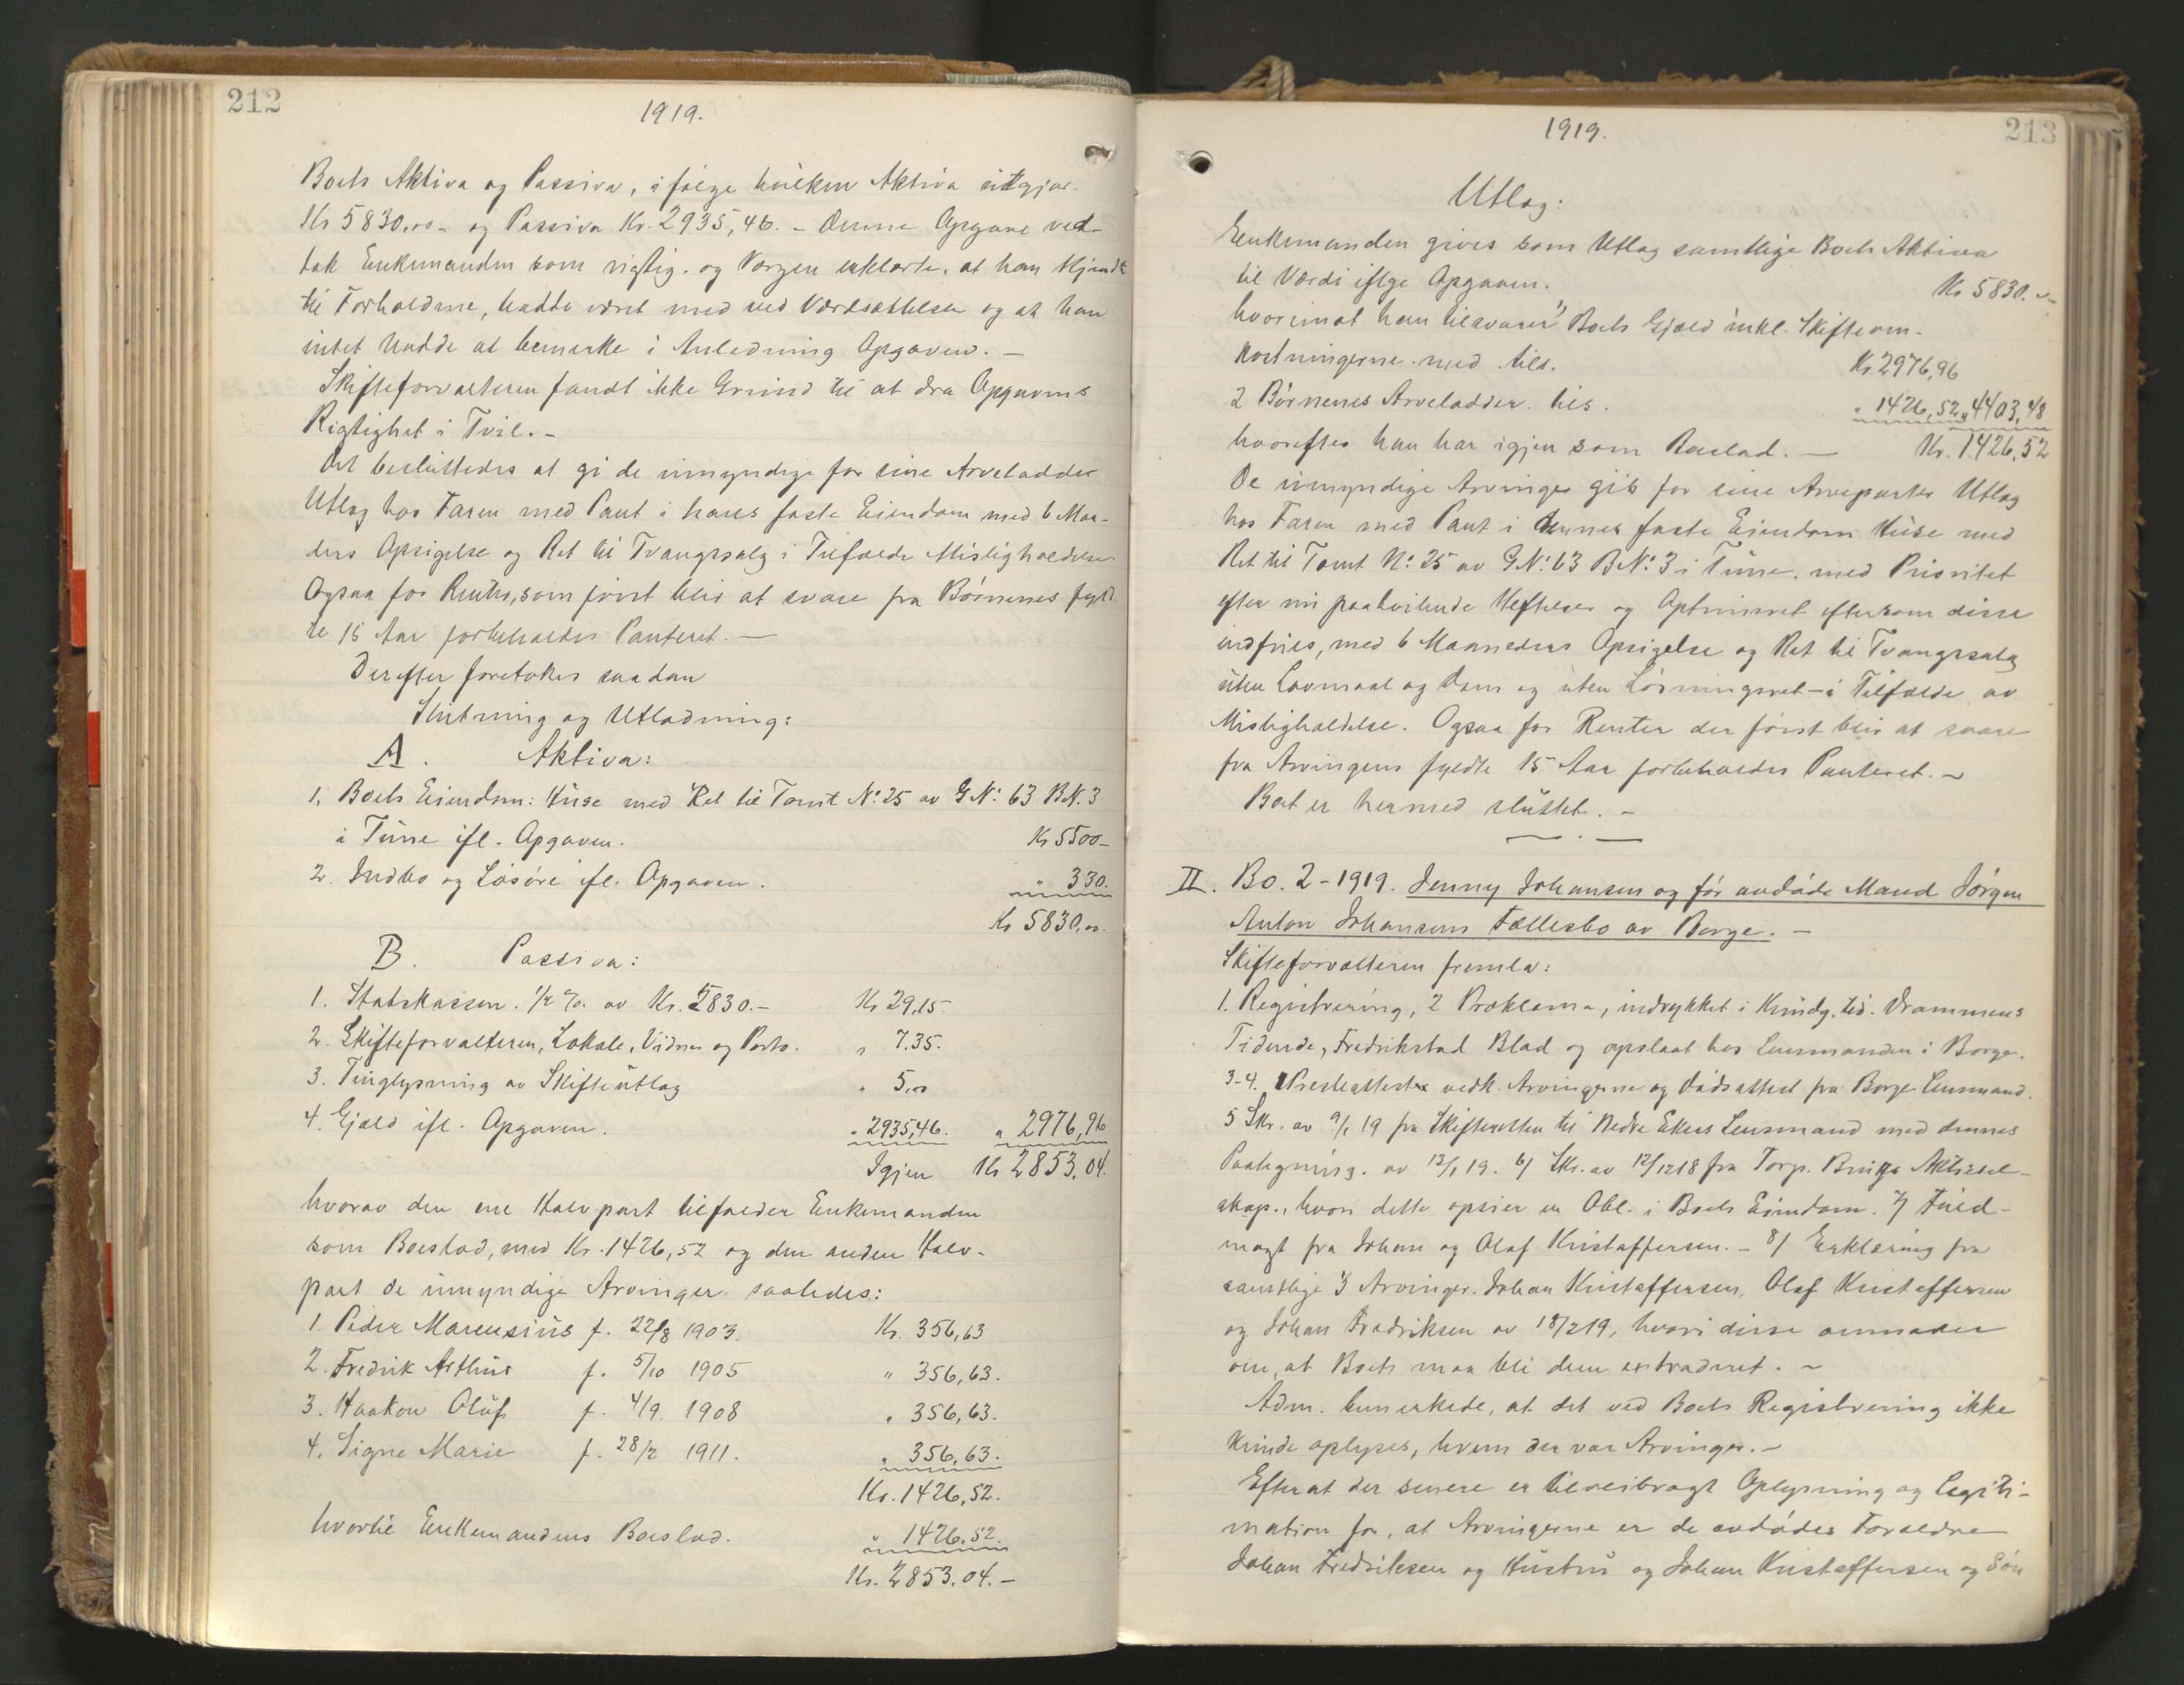 212
1919.
Boets Aktiva og Passiva, i følge hvilken Aktiva utgjør
Kr 5830.00 og Passiva Kr. 2935,46. - Denne Opgave ved-
tok Enkemanden som rigtig. og Værgen erklærte, at han kjendte
til Forholdene, hadde været med ved Værdsættelsen og at han
intet hadde at bemerke i Anledning Opgaven. -
Skifteforvalteren fandt ikke Grund til at dra Opgavens
Rigtighet i Tvil. -
Det besluttedes at gi de umyndige for sine Arvelodder
Utlæg hos Faren med Pant i hans faste Eiendom med 6 Maa-
ders Opsigelse og Ret til Tvangssalg i Tilfælde Misligholdelse
Ogsaa for Renter, som først blir at svare fra Børnenes fyld-
te 15 Aar forbeholdes Panteret. -
Derefter foretokes saadan
Slutning og Utlodning:
A. Aktiva:
1. Boets Eiendom: Huse med Ret til Tomt No: 25 av G No: 63 B.N. 3
i Tune ifl. Opgaven. Kr 5500-
2. Indbo og Løsøre ifl. Opgaven. " 330.
Kr 5830.00.
B. Passiva:
1. Statskassen. 1/2 % av Kr. 5830.- Kr 29,15.
2. Skifteforvalteren, Lokale, Vidner og Porto. " 7.35.
3. Tinglysning av Skifteutlæg " 5,00
4. Gjæld ifl. Opgaven. " 2935,46. " 2976,96
Igjen Kr 2853,04.
hvorav den ene Halvpart tilfalder Enkemanden
som Boeslod, med Kr. 1426,52 og den anden Halv-
part de umyndige Arvinger saaledes:
1. Peder Marensius f. 22/8 1903. Kr. 356,63
2. Fredrik Arthur f. 5/10 1905 " 356,63.
3. Haakon Oluf f. 4/9. 1908 " 356,63.
4. Signe Marie f. 28/2 1911. " 356,63.
Kr. 1426,52.
hvortil Enkemandens Boeslod. " 1426,52.
Kr. 2853.04.-
1919.
213
Utlæg:
Enkemanden gives som Utlæg samtlige Boets Aktiva
til Værdi iflge Opgaven. Kr 5830.
hvorimot han tilsvarer 1 Boets Gjæld inkl. Skifteom-
kostningerne med tils. Kr. 2976,96
2 Børnenes Arvelodder tils. " 1426,52 " 4403,48
hvorefter han har igjen som Boeslod. - Kr. 1426,52
De umyndige Arvinger gis for sine Arveparter Utlæg
hos Faren med Pant i dennes faste Eiendom Huse med
Ret til Tomt No: 25 av G No: 63 B No: 3 i Tune. med Prioritet
efter nu paahvilende Heftelser og Optrinsret eftersom disse
indfries, med 6 Maaneders Opsigelse og Ret til Tvangssalg
uten Lovmaal og Dom og uten Løsningsret - i Tilfælde av
Misligholdelse. Ogsaa for Renter der først blir at svare
fra Arvingens fyldte 15 Aar forbeholdes Panteret. -
Boet er hermed sluttet. -
II. Bo. 2-1919. Jenny Johansen og før avdøde Mand Jørgen
Anton Johansens Fællesbo av Borge. -
Skifteforvalteren fremla:
1. Registrering, 2 Proklama, indrykket i Kundg. tid. Drammens
Tidende, Fredrikstad Blad og opslaat hos Lensmanden i Borge.
3-4. Presteattester vedk. Arvingerne og Dødsattest fra Borge Lensmand.
5 Skr. av 9/1 19 fra Skifteretten til Nedre Ekers Lensmand med dennes
Paategning. av 13/1 19. 6/ Skr. av 12/12 18 fra Torp. Bruks Aktiesel-
skap., hvori dette opsier en Obl. i Boets Eiendom. 7/ Fuld-
magt fra Johan og Olaf Kristoffersen. - 8/ Erklæring fra
samtlige 3 Arvinger. Johan Kristoffersen, Olaf Kristoffersen
og Johan Fredriksen av 18/2 19, hvori disse anmoder
om, at Boets maa bli dem extraderet. -
Adm. bemerkede, at det ved Boets Registrering ikke
kunde oplyses, hvem der var Arvinger. -
Efterat der senere er tilveibragt Oplysning og Legiti-
mation for, at Arvingerne er de avdødes Forældre
Johan Fredriksen og Hustru og Johan Kristoffersen og Søn